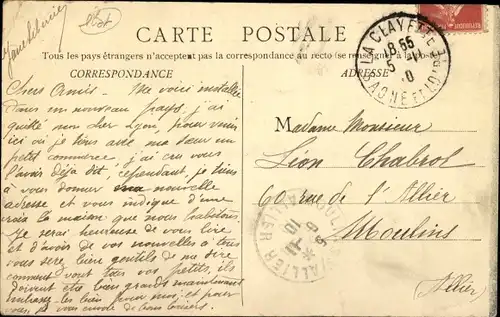 CARTE POSTALE
Tous les pays étrangers n'acceptent pas la correspondance au recto (se renseigner à la poste)
CORRESPONDANCE
ADRESSE
Chers Amis. Me voici installée
dans un nouveau pays, j'ai
quitté mon cher Lyon, pour venir
ici où je tiens avec ma sœur un
petit commerce, j'ai cru vous
l'avoir déjà dit, cependant je tiens
à vous donner ma nouvelle
adresse et vous indique d'une
croix la maison que nous habitons.
Je serai heureuse de vous lire
et d'avoir de vos nouvelles à tous
vous serez bien gentils de me dire
comment vont tous vos petits, ils
doivent être bien grands maintenant
embrassez les bien pour moi, et pour
vous je vous envoie de bons baisers.
Madame Monsieur
Léon Chabrol
60 rue de l'Allier
Moulins
(Allier)
LA CLAYETTE
SAONE ET LOIRE
ALLIER